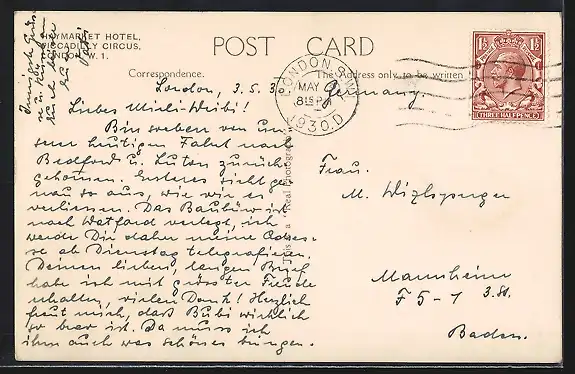 HAYMARKET HOTEL,
PICCADILLY CIRCUS,
LONDON, W. 1.
POST CARD
Correspondence.
The Address only to be written
This is a Real Photograph
LONDON. S.W.1
MAY
8 15 PM
1930. D
1½ 1½
THREE HALFPENCE
London, 3. 5. 3
Liebes Mirli-Weibi!
Bin soeben von un-
serer heutigen Fahrt nach
Bedford u. Luton zurück
gekommen. Ersteres sieht ge-
nau so aus, wie wir es
verliessen. Das Baubüro ist
nach Watford verlegt, ich
werde Dir daher meine Adres-
se ab Dienstag telegrafieren.
Deinen lieben, langen Brief
habe ich mit grösster Freude
erhalten, vielen Dank! Herzlich
freut mich, dass Bubi wirklich
so brav ist. Da muss ich
ihm auch was schönes bringen.
Germany.
Frau.
M.
Mannheim
F 5-1 3. St.
Baden.